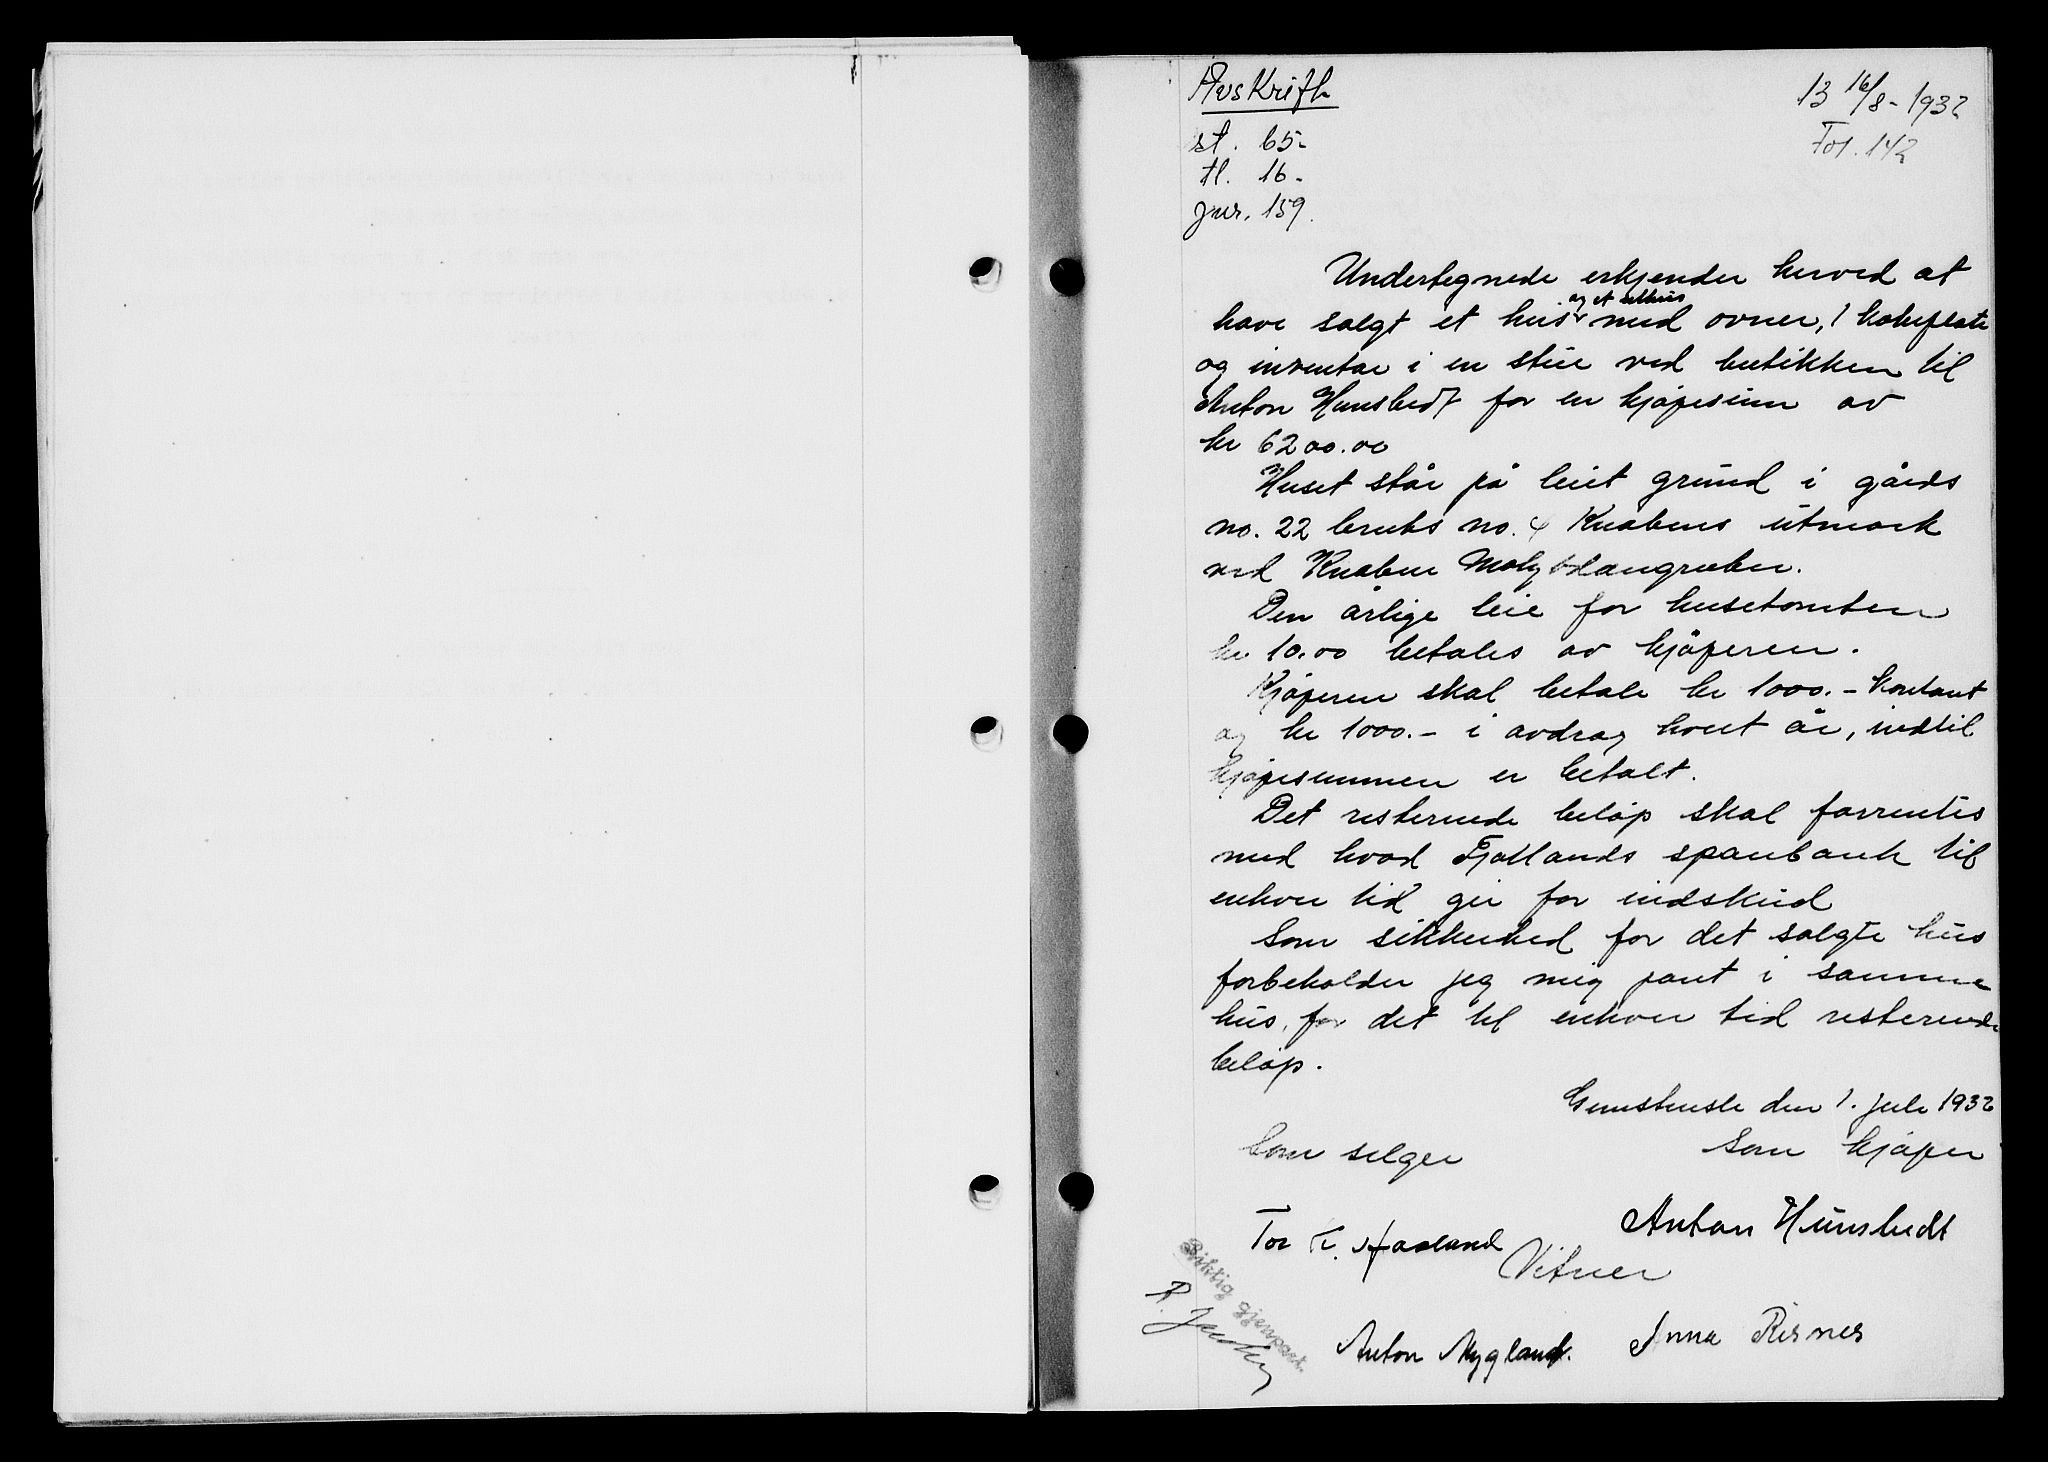 Avskrift
13 16/8 - 1932
Fol. 142
st. 65-
tl. 16-
jur. 159.
Undertegnede erkjender herved at
og et uthus
have salgt et hus med ovner, 1 kokeplate
og inventar i en stue ved butikken til
Anton Hunsbedt for en kjøpesum av
kr 6200.00
Huset står på leiet grund i gårds
no. 22 bruks no. 4 Knabens utmark
ved Knaben Molybdængruber.
Den årlige leie for husetomten
kr 10.00 betales av kjøperen.
Kjøperen skal betale kr 1000.- kontant
og kr 1000.- i avdrag hvert år, indtil
kjøpesummen er betalt.
Det resterende beløp skal forrentes
med hvad Fjotlands sparebank til
enhver tid gir for indskud
Som sikkerhed for det solgte hus
forbeholder jeg mig pant i samme
hus, for det til enhver tid resterende
beløp.
den 1. juli 1932
Som selger
Som kjøper
Anton Hunsbedt
Tor T. Haaland
Vitner
Riktig gjenpart.
Anton Nygland.
Anna Risnes